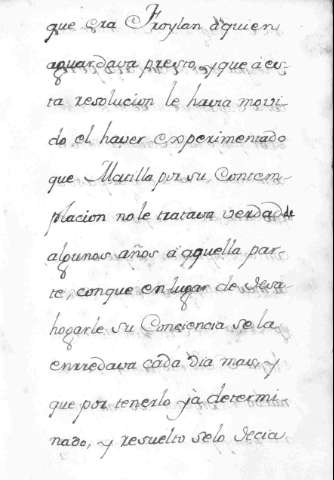 que era Froylan â quien
aguardava presto, y que à es-
ta resolucion le havia movi-
do el haver experimentado
que Matilla por su Contem-
placion no le tratava verdad de
algunos años â aquella par-
te, conque en lugar de desa
hogarle su Conciencia se la
enrredava cada dia mas, y
que por tenerlo yà determi-
nado, y resuelto se lo decia